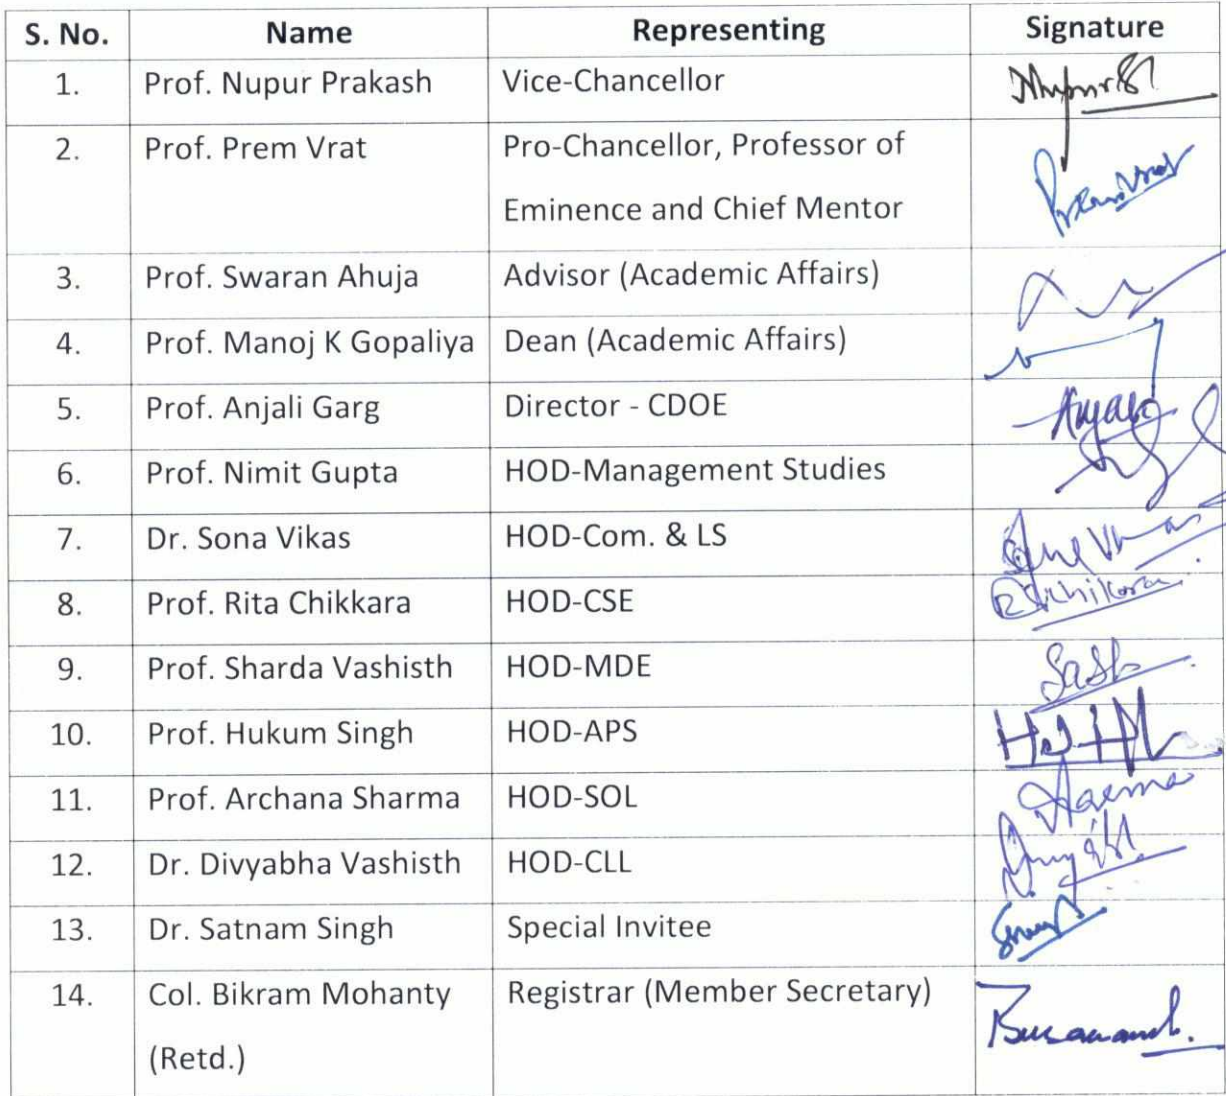 S. No. Name Representing Signature
1. Prof. Nupur Prakash Vice-Chancellor
2. Prof. Prem Vrat Pro-Chancellor, Professor of
Eminence and Chief Mentor
3. Prof. Swaran Ahuja Advisor (Academic Affairs)
4. Prof. Manoj K Gopaliya Dean (Academic Affairs)
5. Prof. Anjali Garg Director - CDOE
6. Prof. Nimit Gupta HOD-Management Studies
7. Dr. Sona Vikas HOD-Com. & LS
8. Prof. Rita Chikkara HOD-CSE
9. Prof. Sharda Vashisth HOD-MDE
10. Prof. Hukum Singh HOD-APS
11. Prof. Archana Sharma HOD-SOL
12. Dr. Divyabha Vashisth HOD-CLL
13. Dr. Satnam Singh Special Invitee
14. Col. Bikram Mohanty Registrar (Member Secretary)
(Retd.)